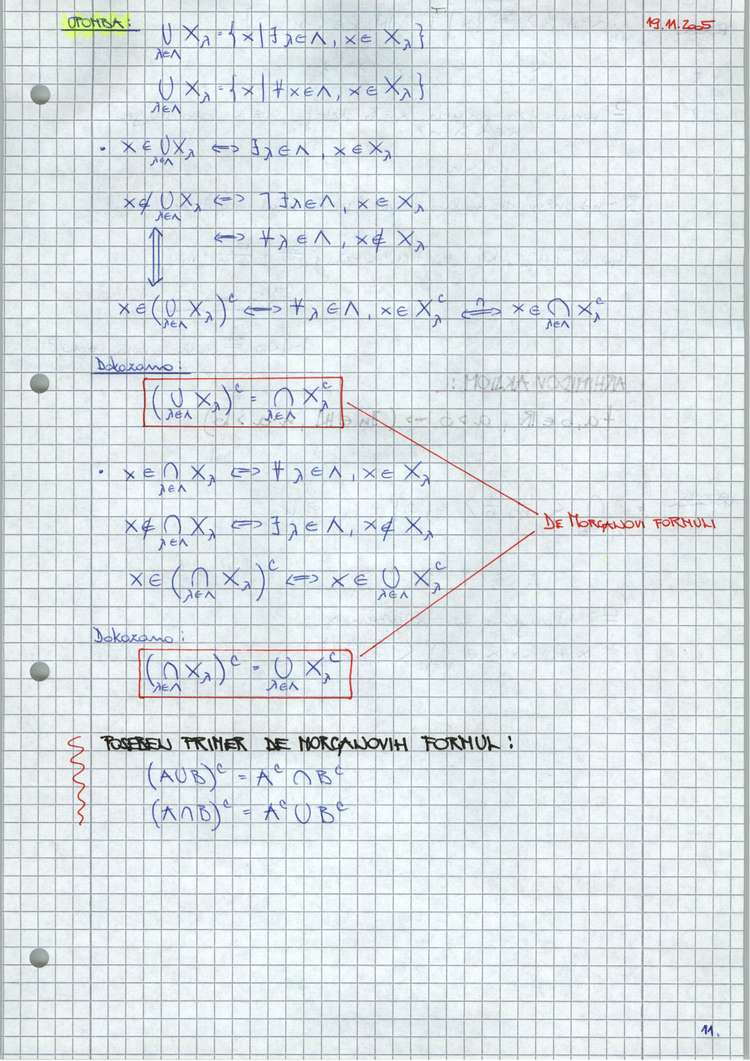 OPOMBA: ⋃_{λ∈Λ} X_λ = {x | ∃ λ∈Λ, x∈ X_λ} 19.11.2005
⋃_{λ∈Λ} X_λ = {x | ∀ x∈Λ, x∈ X_λ}
• x ∈ ⋃_{λ∈Λ} X_λ ⇔ ∃ λ∈Λ, x∈X_λ
x∉ ⋃_{λ∈Λ} X_λ ⇔ ⅂∃ λ∈Λ, x∈ X_λ
⇕ ⇔ ∀ λ∈Λ, x∉ X_λ
x∈(⋃_{λ∈Λ} X_λ)^C ⇔ ∀ λ∈Λ, x∈X_λ^C ⇔ x∈⋂_{λ∈Λ} X_λ^C
Dokazano:
(⋃_{λ∈Λ} X_λ)^C = ⋂_{λ∈Λ} X_λ^C
• x∈⋂_{λ∈Λ} X_λ ⇔ ∀ λ∈Λ, x∈X_λ
x∉⋂_{λ∈Λ} X_λ ⇔ ∃ λ∈Λ, x∉ X_λ
DE MORGANOVI FORMULI
x∈(⋂_{λ∈Λ} X_λ)^C ⇔ x∈ ⋃_{λ∈Λ} X_λ^C
Dokazano:
(⋂_{λ∈Λ} X_λ)^C = ⋃_{λ∈Λ} X_λ^C
POSEBEN PRIMER DE MORGANOVIH FORMUL:
(A∪B)^C = A^C ∩ B^C
(A∩B)^C = A^C ∪ B^C
11.